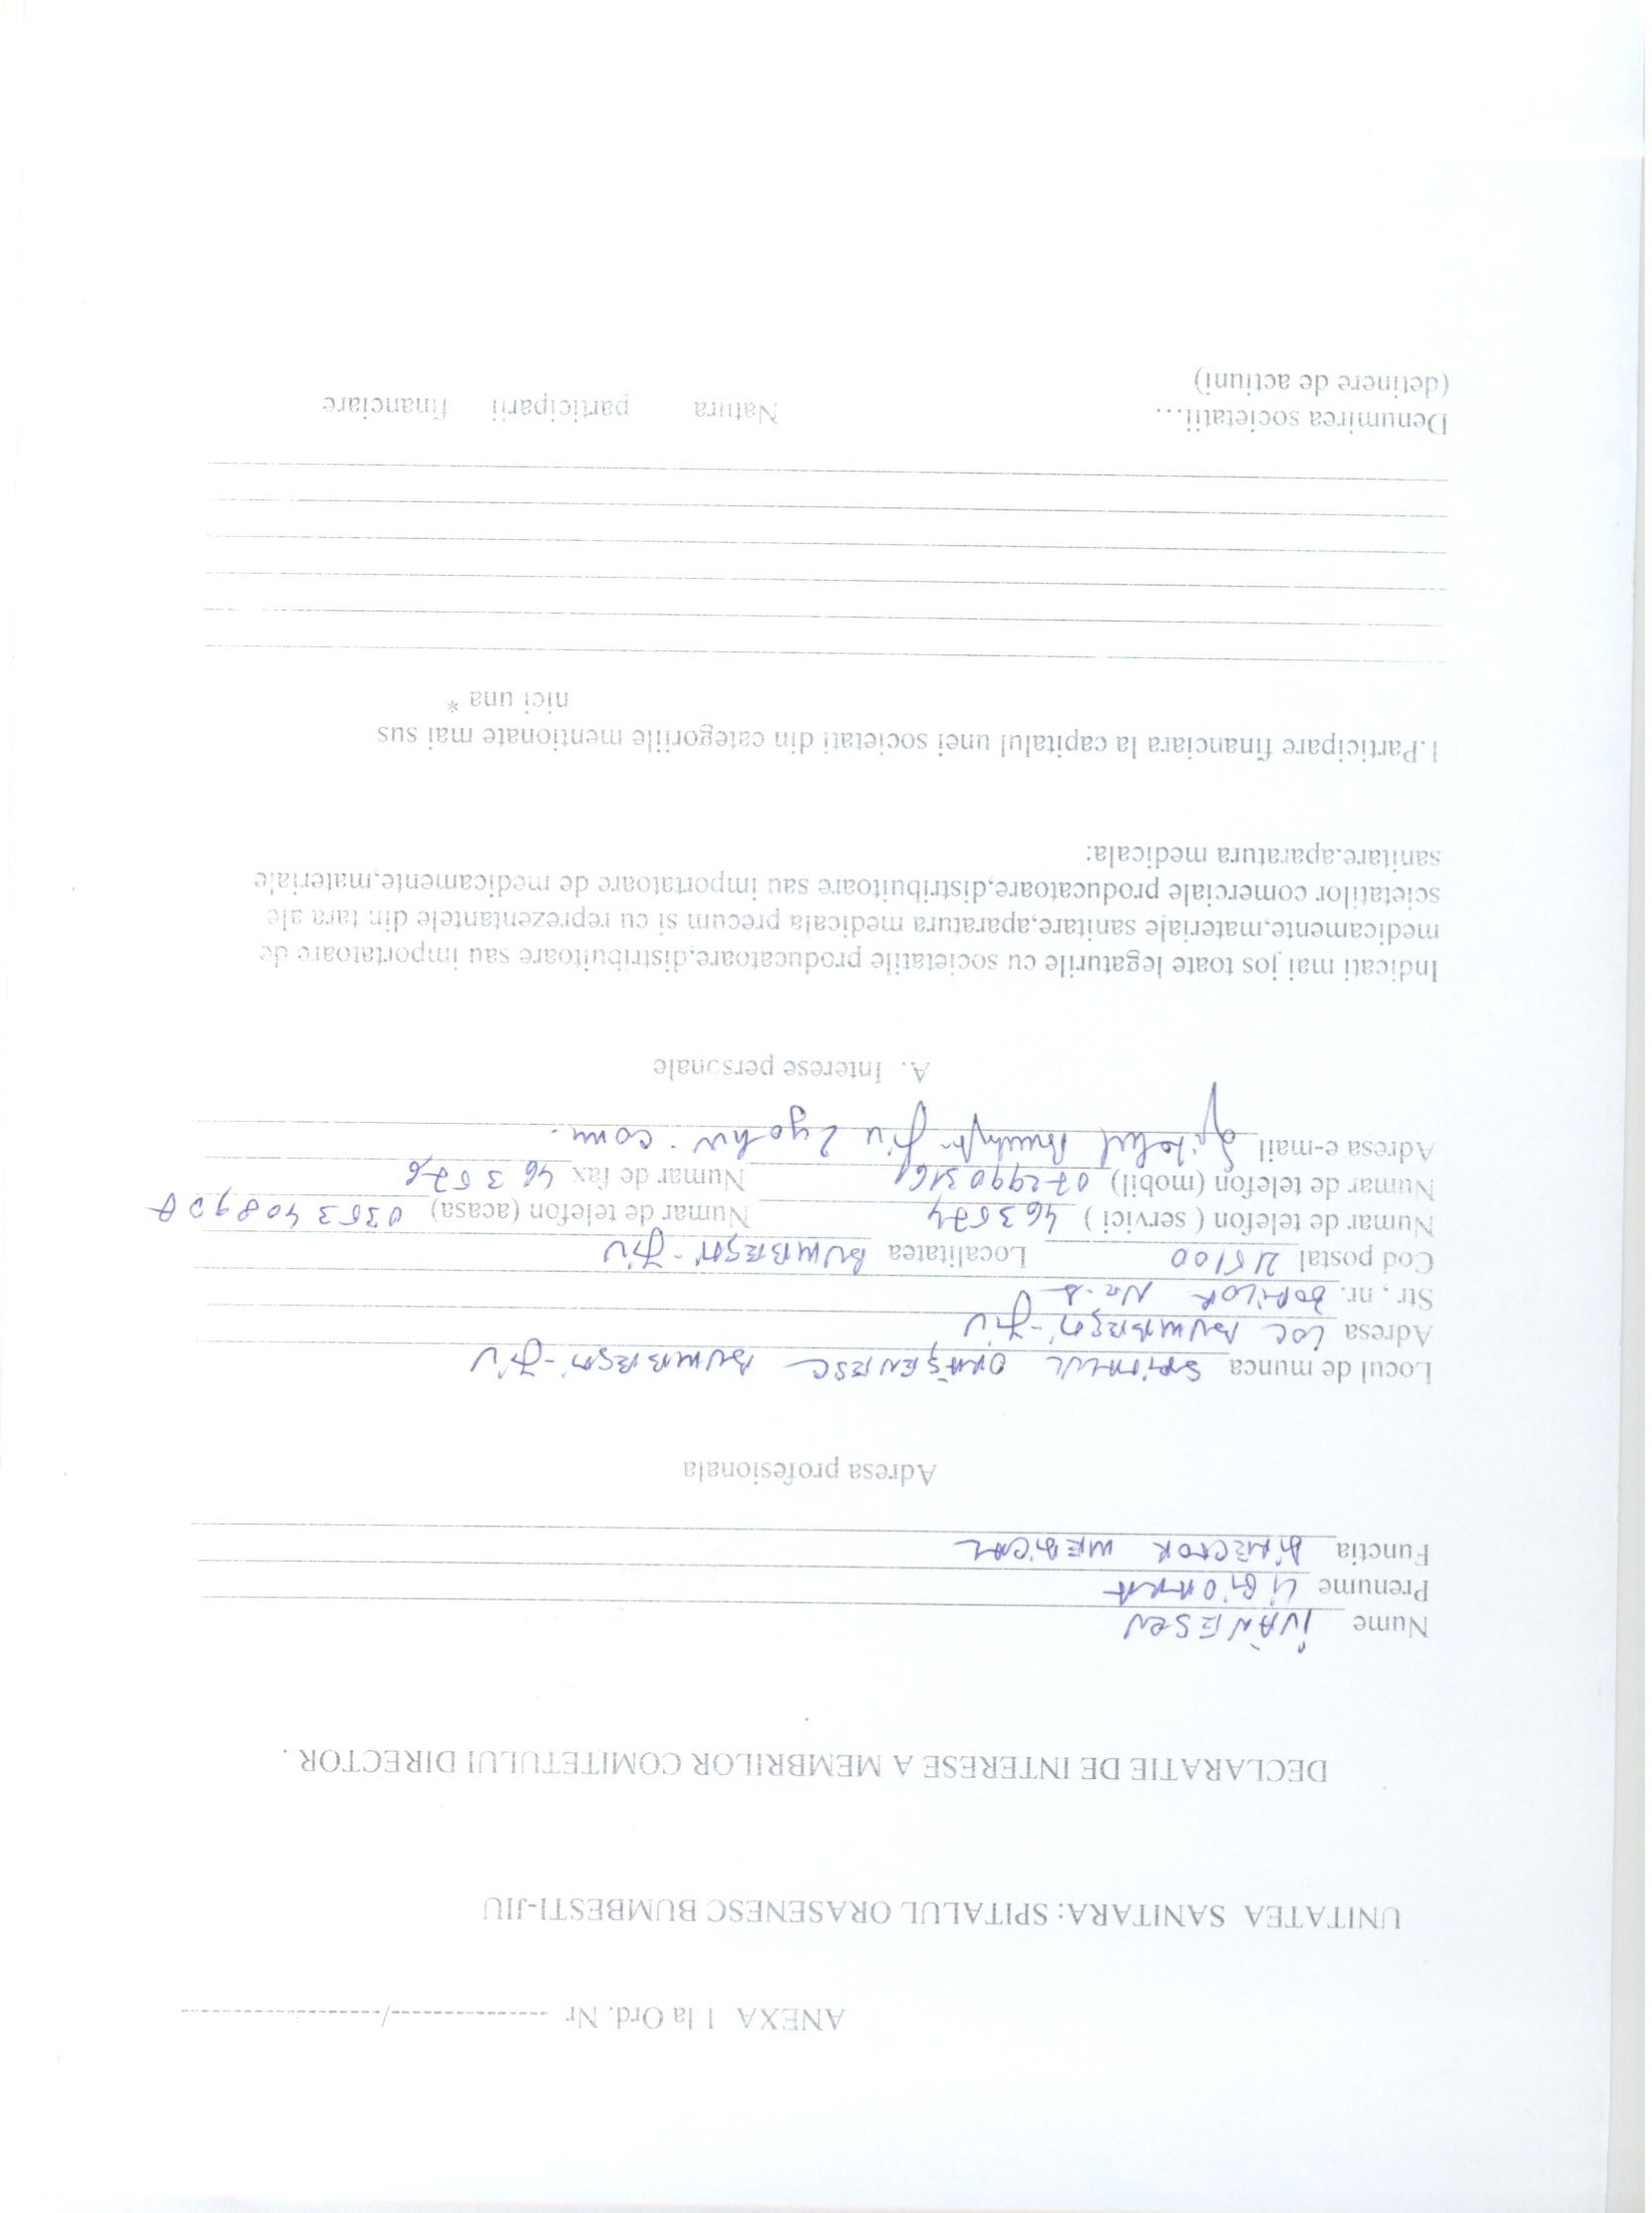 ANEXA 1 la Ord. Nr ----------------/---------------------
UNITATEA SANITARA: SPITALUL ORASENESC BUMBESTI-JIU
DECLARATIE DE INTERESE A MEMBRILOR COMITETULUI DIRECTOR .
Nume
Prenume
Functia DIRECTOR MEDICAL
Adresa profesionala
Locul de munca SPITALUL ORĂŞENESC BUMBEŞTI-JIU
Adresa LOC BUMBEŞTI-JIU
Str , nr.
Cod postal 215100 Localitatea BUMBEŞTI-JIU
Numar de telefon ( servici ) 463574 Numar de telefon (acasa)
Numar de telefon (mobil) Numar de fax 463576
Adresa e-mail
A. Interese personale
Indicati mai jos toate legaturile cu societatile producatoare,distribuitoare sau importatoare de
medicamente,materiale sanitare,aparatura medicala precum si cu reprezentantele din tara ale
scietatilor comerciale producatoare,distribuitoare sau importatoare de medicamente,materiale
sanitare,aparatura medicala:
1.Participare financiara la capitalul unei societati din categoriile mentionate mai sus
nici una *
Denumirea societatii... Natura participarii financiare
(detinere de actiuni)